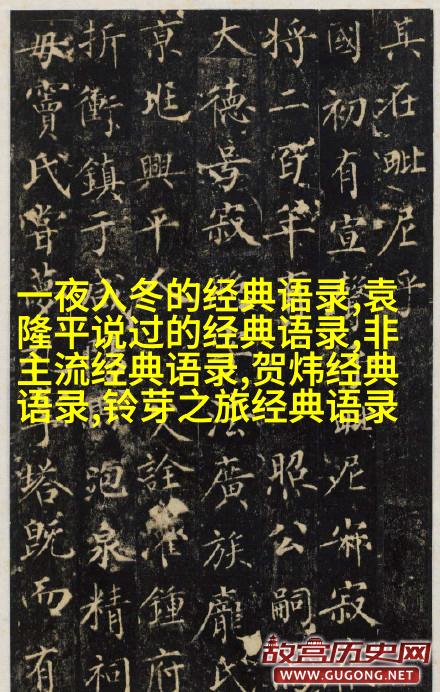 其在毗尼乎
國初有宣 尼 寂
將二百年 照公嗣
大德号寂 廣族龐氏
京兆興平 詮 鍾府
折衝鎮于 泡泉精祠
母竇氏嘗 塔既而有
一夜入冬的经典语录,袁
隆平说过的经典语录,非
主流经典语录,贺炜经典
语录,铃芽之旅经典语录
故宫历史网
WWW.GUGONG.NET